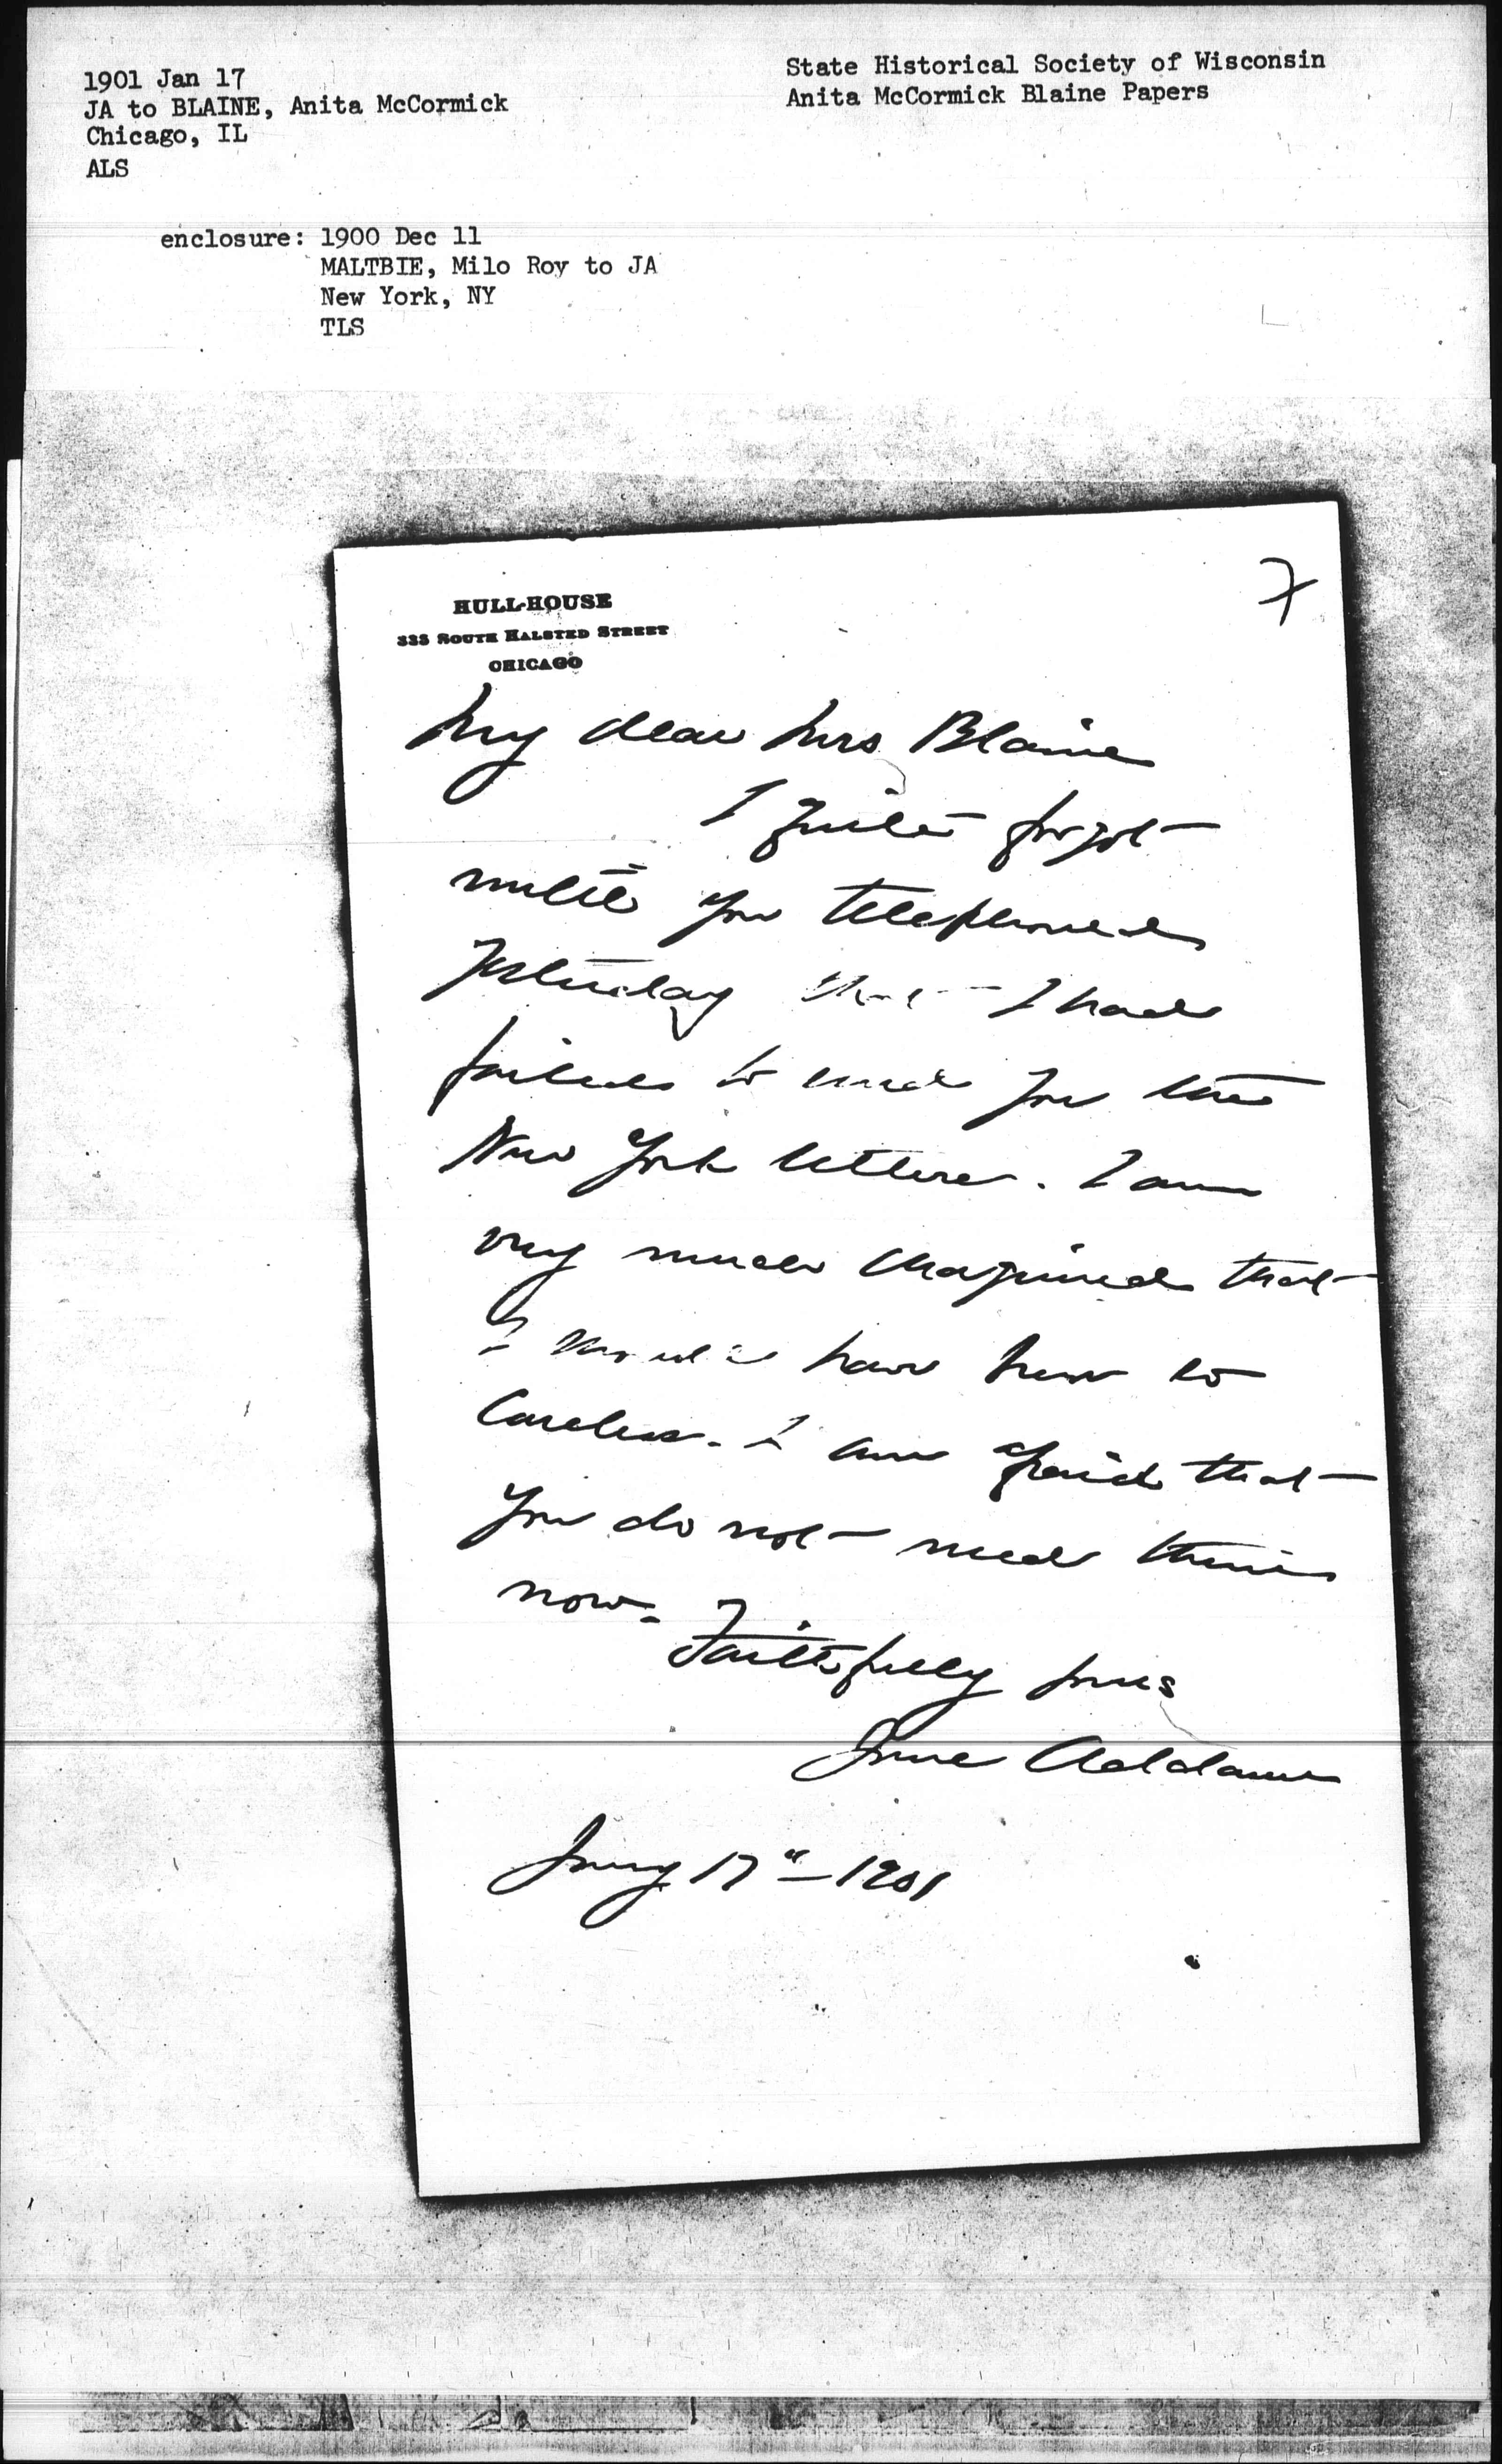 1901 Jan 17
JA to BLAINE, Anita McCormick
Chicago, IL
ALS
State Historical Society of Wisconsin
Anita McCormick Blaine Papers
enclosure: 1900 Dec 11
MALTBIE, Milo Roy to JA
New York, NY
TLS
7
HULL-HOUSE
335 SOUTH HALSTED STREET
CHICAGO
My dear Mrs Blaine
I quite forgot
until you telephoned
yesterday that I had
failed to send you the
New York letters. I am
very much chagrined that
I should have been so
careless. I am afraid that
you do not need them
now.
Faithfully yours
Jane Addams
Jany 17" - 1901